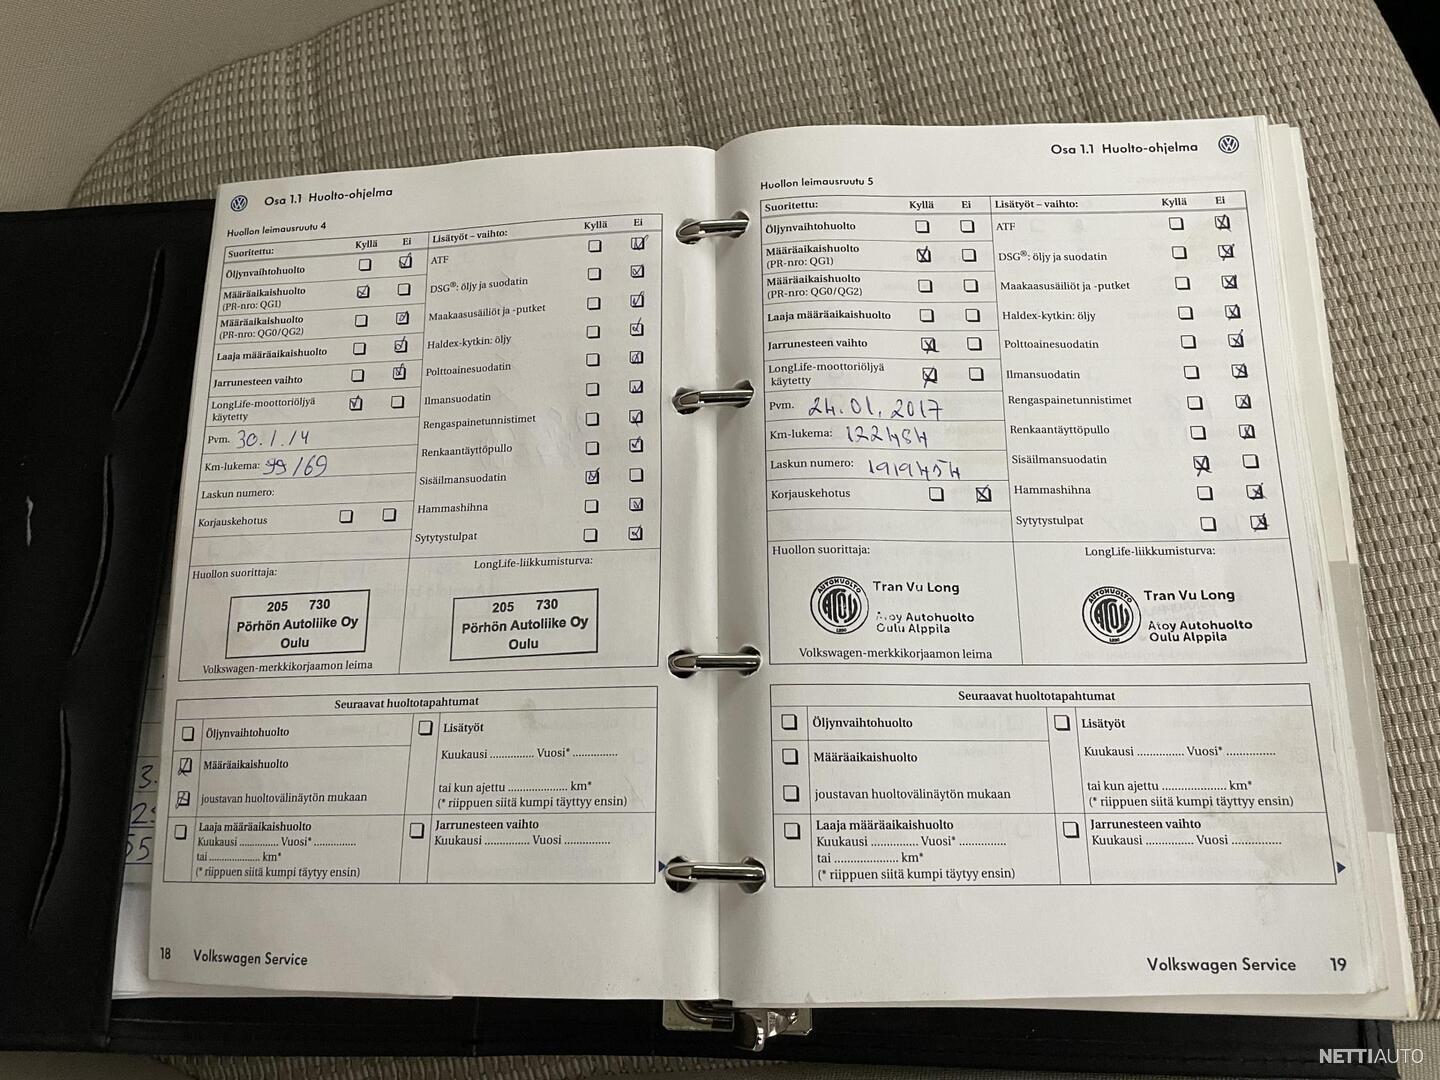 Osa 1.1 Huolto-ohjelma
Huollon leimausruutu 4
Suoritettu: Kyllä Ei
Öljynvaihtohuolto
Määräaikaishuolto
(PR-nro: QG1)
Määräaikaishuolto
(PR-nro: QG0/QG2)
Laaja määräaikaishuolto
Jarrunesteen vaihto
LongLife-moottoriöljyä
käytetty
Pvm. 30.1.14
Km-lukema: 99169
Laskun numero:
Korjauskehotus
Lisätyöt – vaihto: Kyllä Ei
ATF
DSG®: öljy ja suodatin
Maakaasusäiliöt ja -putket
Haldex-kytkin: öljy
Polttoainesuodatin
Ilmansuodatin
Rengaspainetunnistimet
Renkaantäyttöpullo
Sisäilmansuodatin
Hammashihna
Sytytystulpat
Huollon suorittaja:
205 730
Pörhön Autoliike Oy
Oulu
Volkswagen-merkkikorjaamon leima
LongLife-liikkumisturva:
205 730
Pörhön Autoliike Oy
Oulu
Seuraavat huoltotapahtumat
Öljynvaihtohuolto
Määräaikaishuolto
joustavan huoltovälinäytön mukaan
Laaja määräaikaishuolto
Kuukausi .............. Vuosi* ..............
tai .................... km*
(* riippuen siitä kumpi täytyy ensin)
Lisätyöt
Kuukausi .............. Vuosi* ..............
tai kun ajettu .................... km*
(* riippuen siitä kumpi täytyy ensin)
Jarrunesteen vaihto
Kuukausi .............. Vuosi ..............
18 Volkswagen Service
Osa 1.1 Huolto-ohjelma
Huollon leimausruutu 5
Suoritettu: Kyllä Ei
Öljynvaihtohuolto
Määräaikaishuolto
(PR-nro: QG1)
Määräaikaishuolto
(PR-nro: QG0/QG2)
Laaja määräaikaishuolto
Jarrunesteen vaihto
LongLife-moottoriöljyä
käytetty
Pvm. 24.01.2017
Km-lukema: 122484
Laskun numero: 1919454
Korjauskehotus
Lisätyöt – vaihto: Kyllä Ei
ATF
DSG®: öljy ja suodatin
Maakaasusäiliöt ja -putket
Haldex-kytkin: öljy
Polttoainesuodatin
Ilmansuodatin
Rengaspainetunnistimet
Renkaantäyttöpullo
Sisäilmansuodatin
Hammashihna
Sytytystulpat
Huollon suorittaja:
AUTOHUOLTO
ATOY
Tran Vu Long
Atoy Autohuolto
Oulu Alppila
Volkswagen-merkkikorjaamon leima
LongLife-liikkumisturva:
AUTOHUOLTO
ATOY
Tran Vu Long
Atoy Autohuolto
Oulu Alppila
Seuraavat huoltotapahtumat
Öljynvaihtohuolto
Määräaikaishuolto
joustavan huoltovälinäytön mukaan
Laaja määräaikaishuolto
Kuukausi .............. Vuosi* ..............
tai .................... km*
(* riippuen siitä kumpi täytyy ensin)
Lisätyöt
Kuukausi .............. Vuosi* ..............
tai kun ajettu .................... km*
(* riippuen siitä kumpi täytyy ensin)
Jarrunesteen vaihto
Kuukausi .............. Vuosi ..............
Volkswagen Service 19
NETTIAUTO